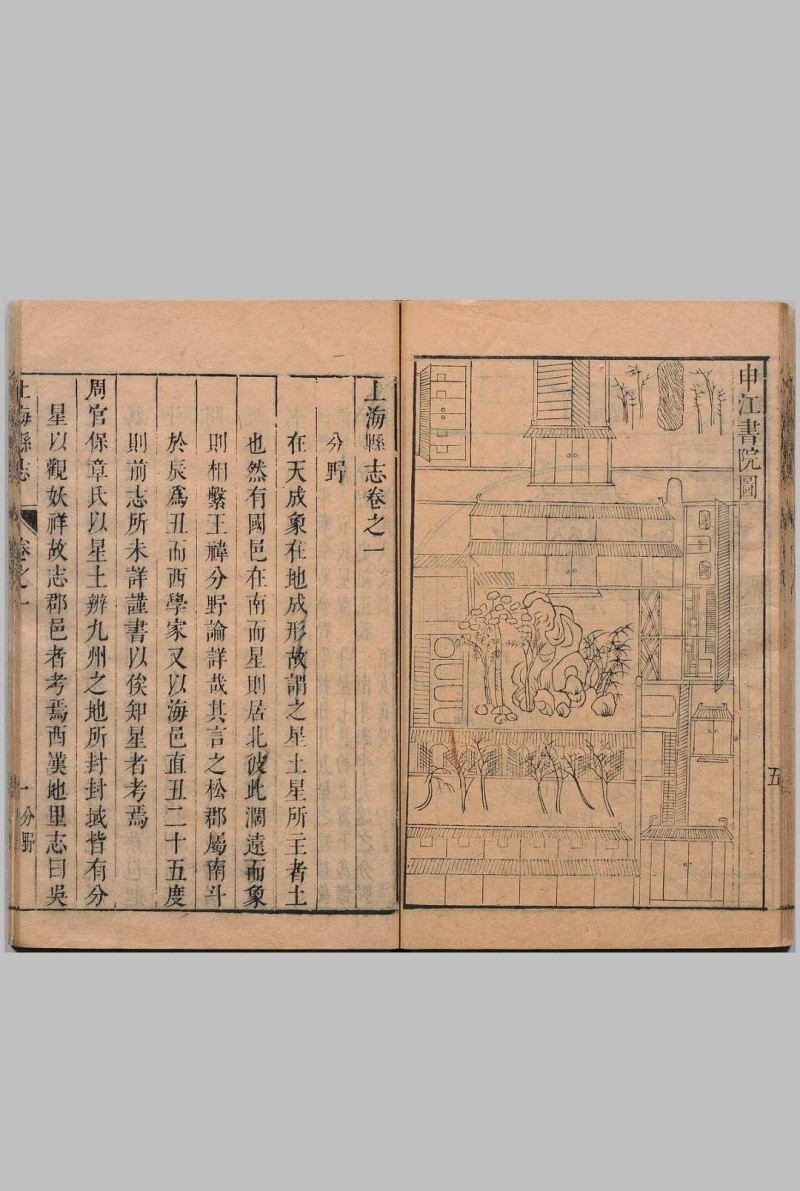 申江書院圖
五
上海縣志卷之一
分野
在天成象在地成形故謂之星土星所王者土
也然有國邑在南而星則居北彼此濶遠而象
則相繫王禕分野論詳哉其言之松郡屬南斗
於辰爲丑而西學家又以海邑直丑二十五度
則前志所未詳謹書以俟知星者考焉
周官保章氏以星土辨九州之地所封封域皆有分
星以觀妖祥故志郡邑者考焉西漢地里志曰吳
上海縣志
卷之一
一
分野